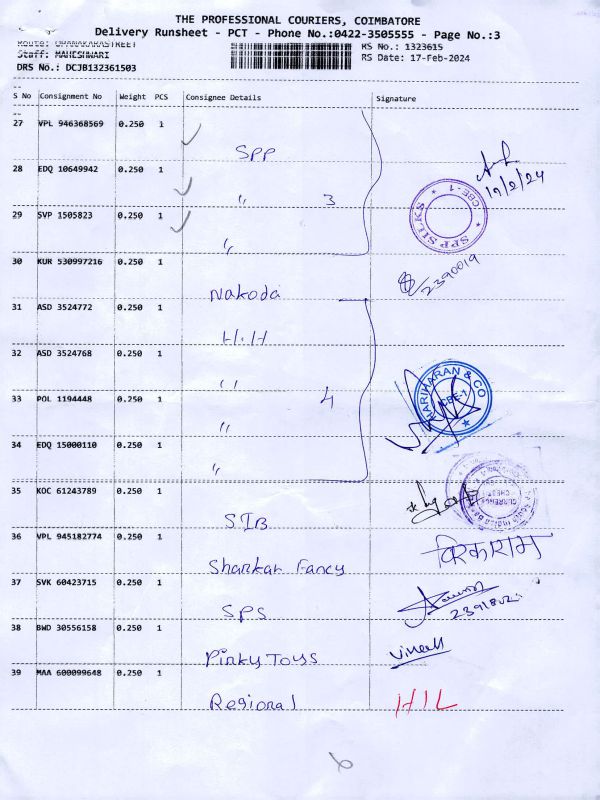 THE PROFESSIONAL COURIERS, COIMBATORE
Delivery Runsheet - PCT - Phone No.:0422-3505555 - Page No.:3
RS No.: 1323615
Staff: MAHESHWARI
RS Date: 17-Feb-2024
DRS No.: DCJB132361503
S No Consignment No Weight PCS Consignee Details Signature
27 VPL 946368569 0.250 1
SPP
28 EDQ 10649942 0.250 1
〃 3
17/2/24
29 SVP 1505823 0.250 1
SPP SILKS
CBE-1
〃
30 KUR 530997216 0.250 1
Nakoda
2390019
31 ASD 3524772 0.250 1
H.H
32 ASD 3524768 0.250 1
〃
HARIHARAN & CO
CBE-1
33 POL 1194448 0.250 1
4
〃
34 EDQ 15000110 0.250 1
〃
35 KOC 61243789 0.250 1
SIB
36 VPL 945182774 0.250 1
Shankar Fancy
37 SVK 60423715 0.250 1
SPS
38 BWD 30556158 0.250 1
Pinky Toys
Vineeth
39 MAA 600099648 0.250 1
Regional
HIL